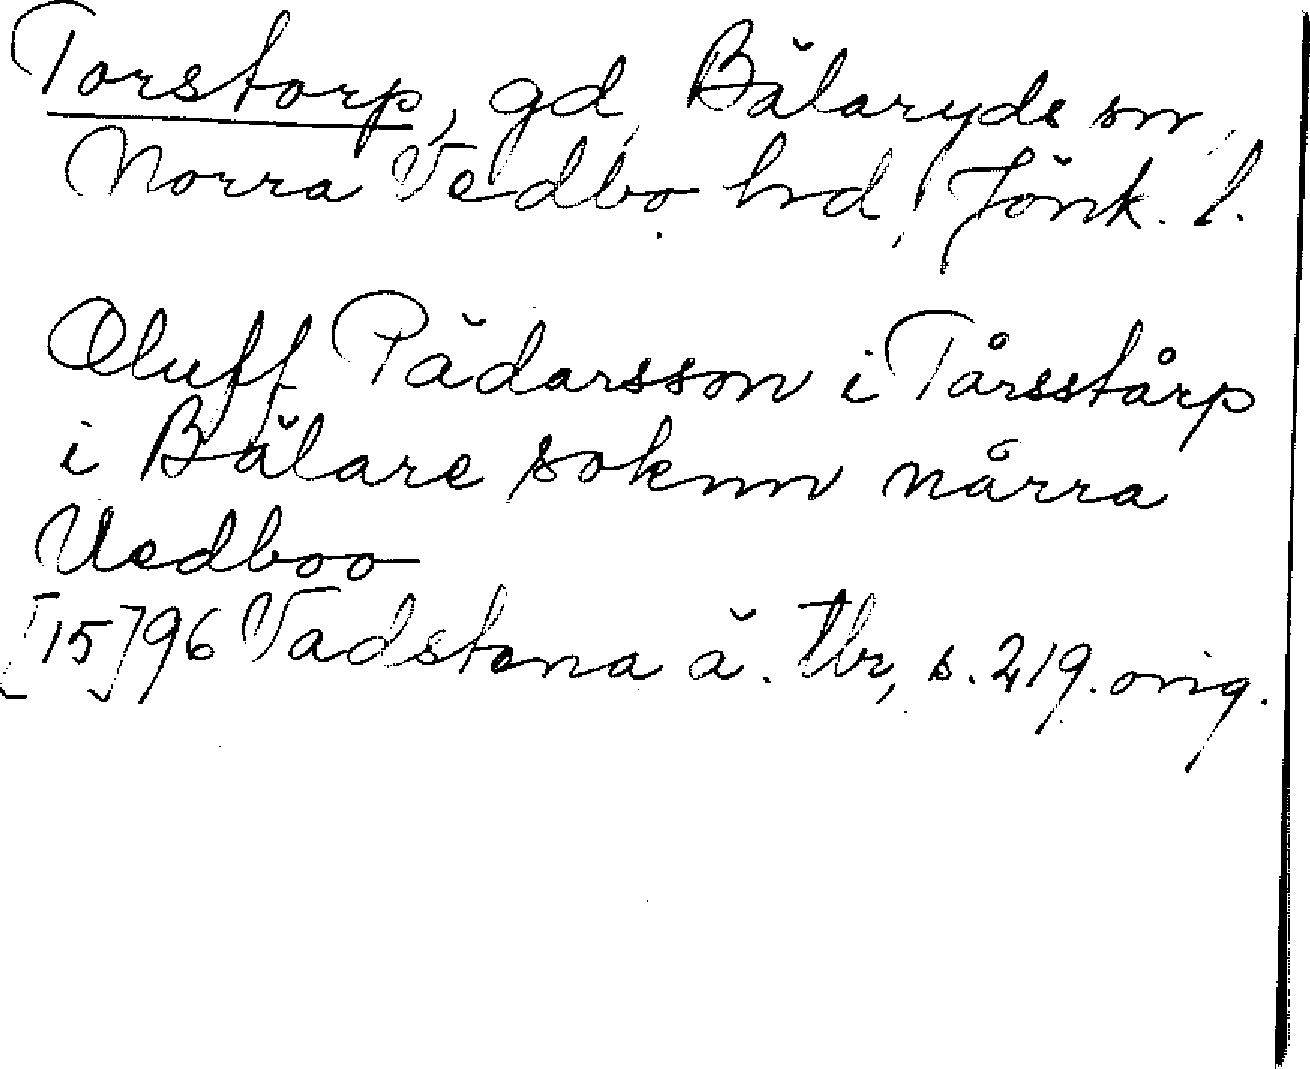 Torstorp, gd, Bälaryds sn,
Norra Vedbo hd, Jönk. l.
Oluff Pädarsson i Tårsstårp
i Bälare soknn nårra
Uedboo
[15]96 Vadstena ä. tbr, s. 219. orig.